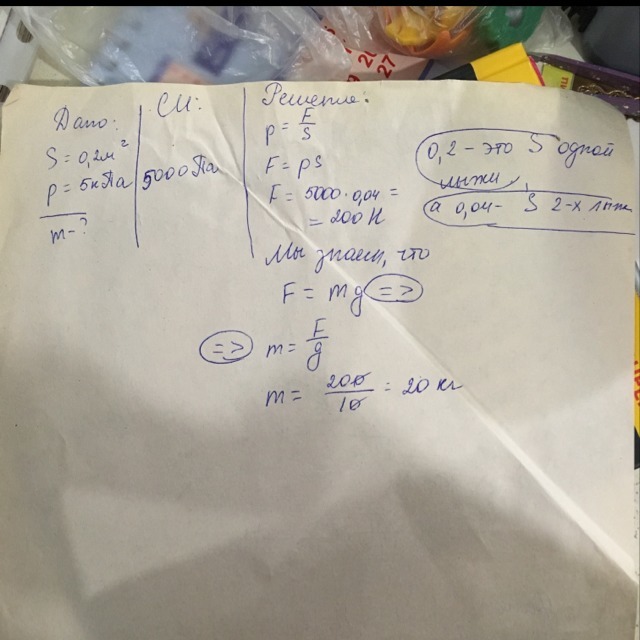 Дано:
S = 0,2м²
p = 5кПа
m - ?
СИ:
5000Па
Решение:
p = F/S
F = pS
F = 5000 · 0,04 =
= 200 Н
0,2 - это S одной
лыжи,
а 0,04 - S 2-х лыж
Мы знаем, что
F = mg =>
=> m = F/g
m = 200/10 = 20 кг
20
27